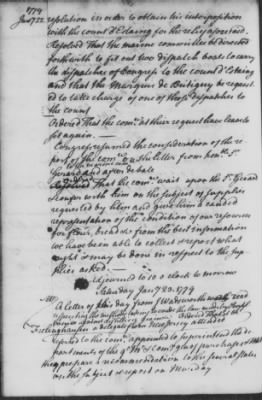 1779
Jany 22. resolution in order to obtain his interposition
with the count d'Estaing for the relief aforesaid.
Resolved That the marine committee be directed
forthwith to fit out two dispatch boats to carry
the dispatches of Congress to the count d'Estaing
and that the Marquis de Bretigny be request
ed to take charge of one of those dispatches to
the count
Ordered That the comee at their request have leave to
sit again. —
Congress resumed the consideration of the re
port of the comee on the letter from honble Sr
Gerard and after debate
Resolved That the comee wait upon the Sr Gerard
confer with him on the subject of supplies
requested by him and give him a candid
representation of the condition of our resources
for flour, bread &c from the best information
we have been able to collect & report what
ought & may be done in respect to the sup
plies asked. —
Adjourned to 10 o'Clock to morrow
Saturday Jany 23. 1779
A letter of this day from J Wadsworth was read
respecting the
Frelinghuysen a delegate from New Jersey attended
referred to the comee appointed to superintend the de
partments of the qr Mr & comy
prepare a recommendation to the several states
on the subject & report on Monday